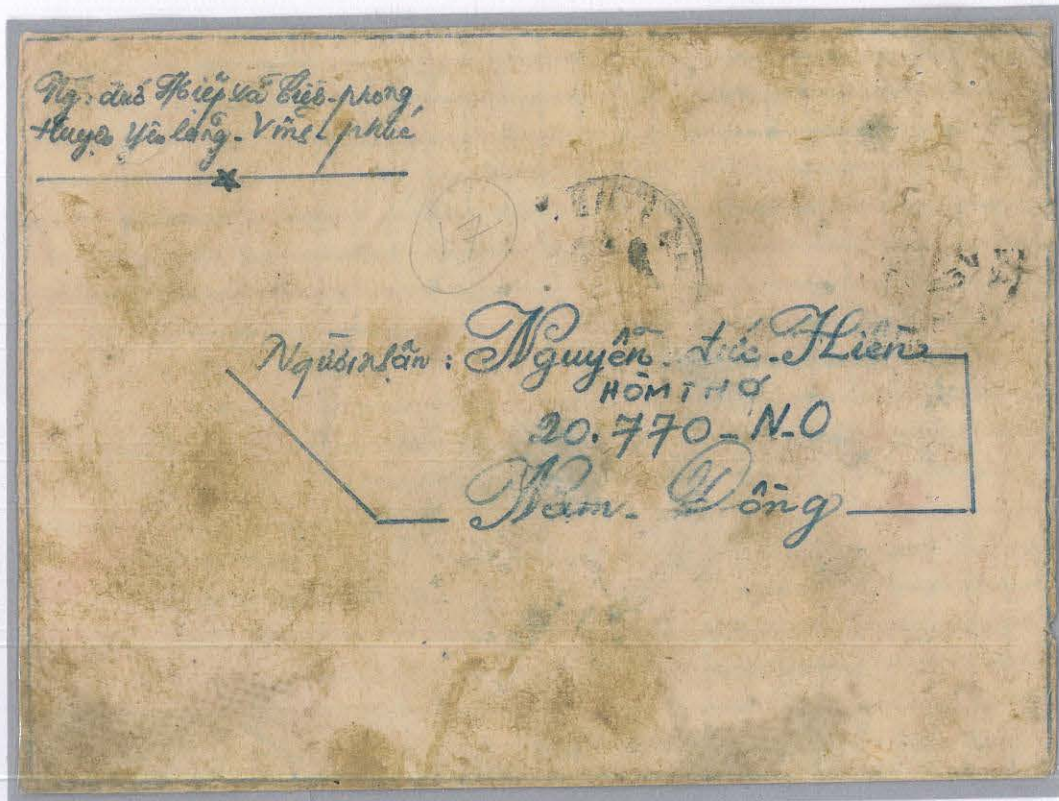 Ng: đức Hiệp xã Tiền-phong,
Huyện Yên lãng - Vĩnh - phúc
17
Người nhận: Nguyễn - đức - Hiền
HÒM THƠ
20.770 - N.O
Nam - Đồng